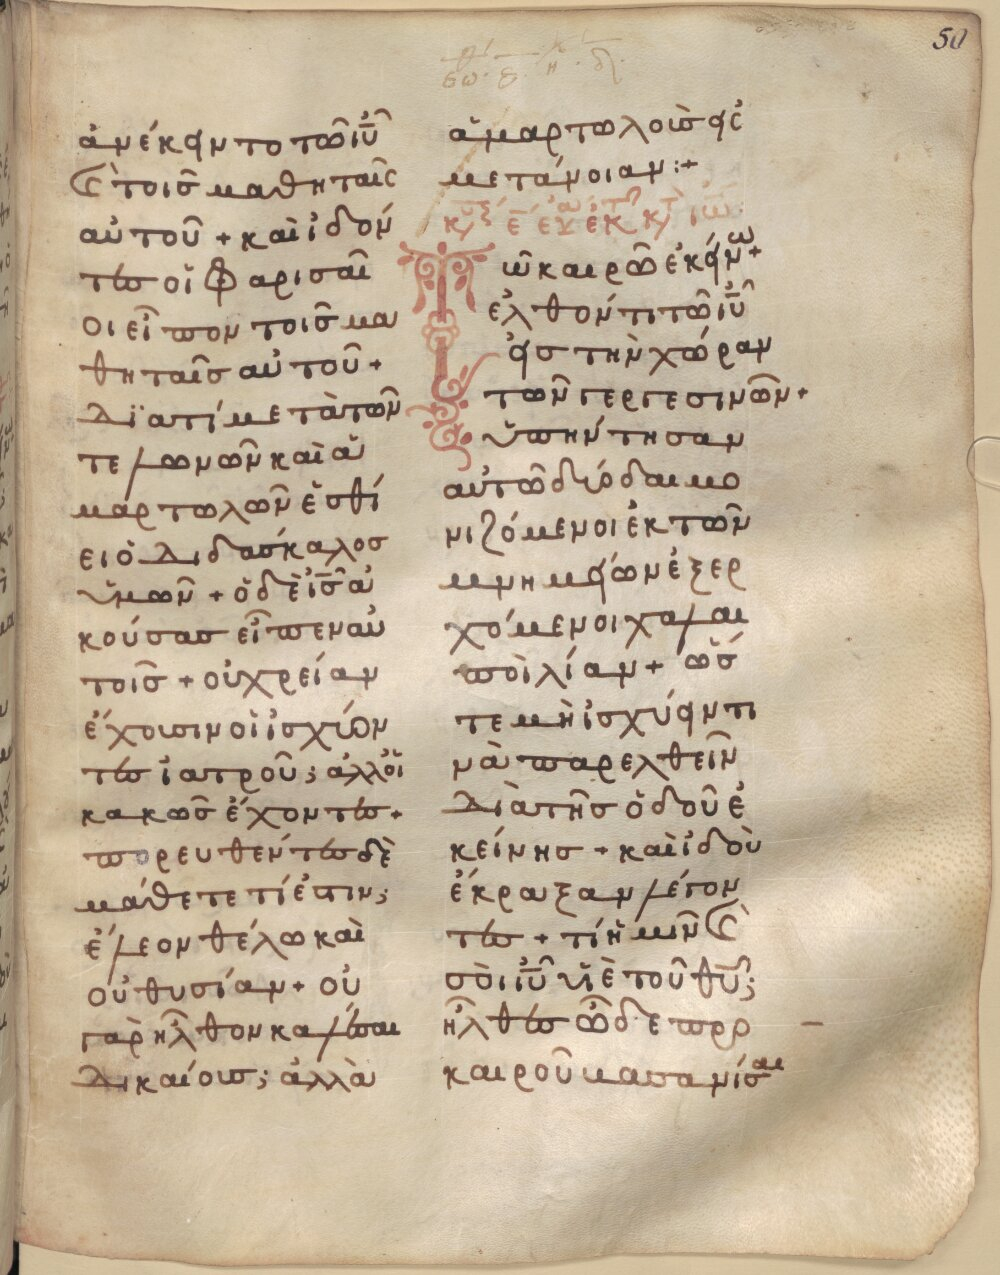 50
ἀνέκειντο τῶ ἰῦ
καὶ τοῖς μαθηταῖς
αὐτοῦ + καὶ ἰδόν
τες οἱ Φαρισαῖ
οι εἶπον τοῖς μα
θηταῖς αὐτοῦ +
Διατί μετὰ τῶν
τελωνῶν καὶ ἁ
μαρτωλῶν ἐσθί
ει ὁ Διδάσκαλος
ὑμῶν + ὁ δὲ ἰς ἀ
κούσας εἶπεν αὐ
τοῖς + οὐ χρείαν
ἔχουσιν οἱ ἰσχύον
τες ἰατροῦ; ἀλλ' οἱ
κακῶς ἔχοντες +
πορευθέντες δὲ
μάθετε τί ἐστιν;
ἔλεον θέλω καὶ
οὐ θυσίαν + οὐ
γὰρ ἦλθον καλέσαι
Δικαίους; ἀλλὰ
ἁμαρτωλοὺς εἰ
μετάνοιαν :+
Τῶ καιρῶ ἐκείνω +
ἐλθόντι τῶ ἰῦ
εἰς τὴν χώραν
τῶν γεργεσινῶν +
ὑπήντησαν
αὐτῶ δύο δαιμο
νιζόμενοι ἐκ τῶν
μνημείων ἐξερ
χόμενοι χαλε
ποὶ λίαν + ὥσ
τε μὴ ἰσχύειν τι
νὰ παρελθεῖν
Διὰ τῆς ὁδοῦ ἐ
κείνης + καὶ ἰδοὺ
ἔκραξαν λέγον
τες + τί ἡμῖν καὶ
σοὶ ἰῦ υἱὲ τοῦ θῦ;
ἦλθες ὧδε πρὸ
καιροῦ βασανίσαι